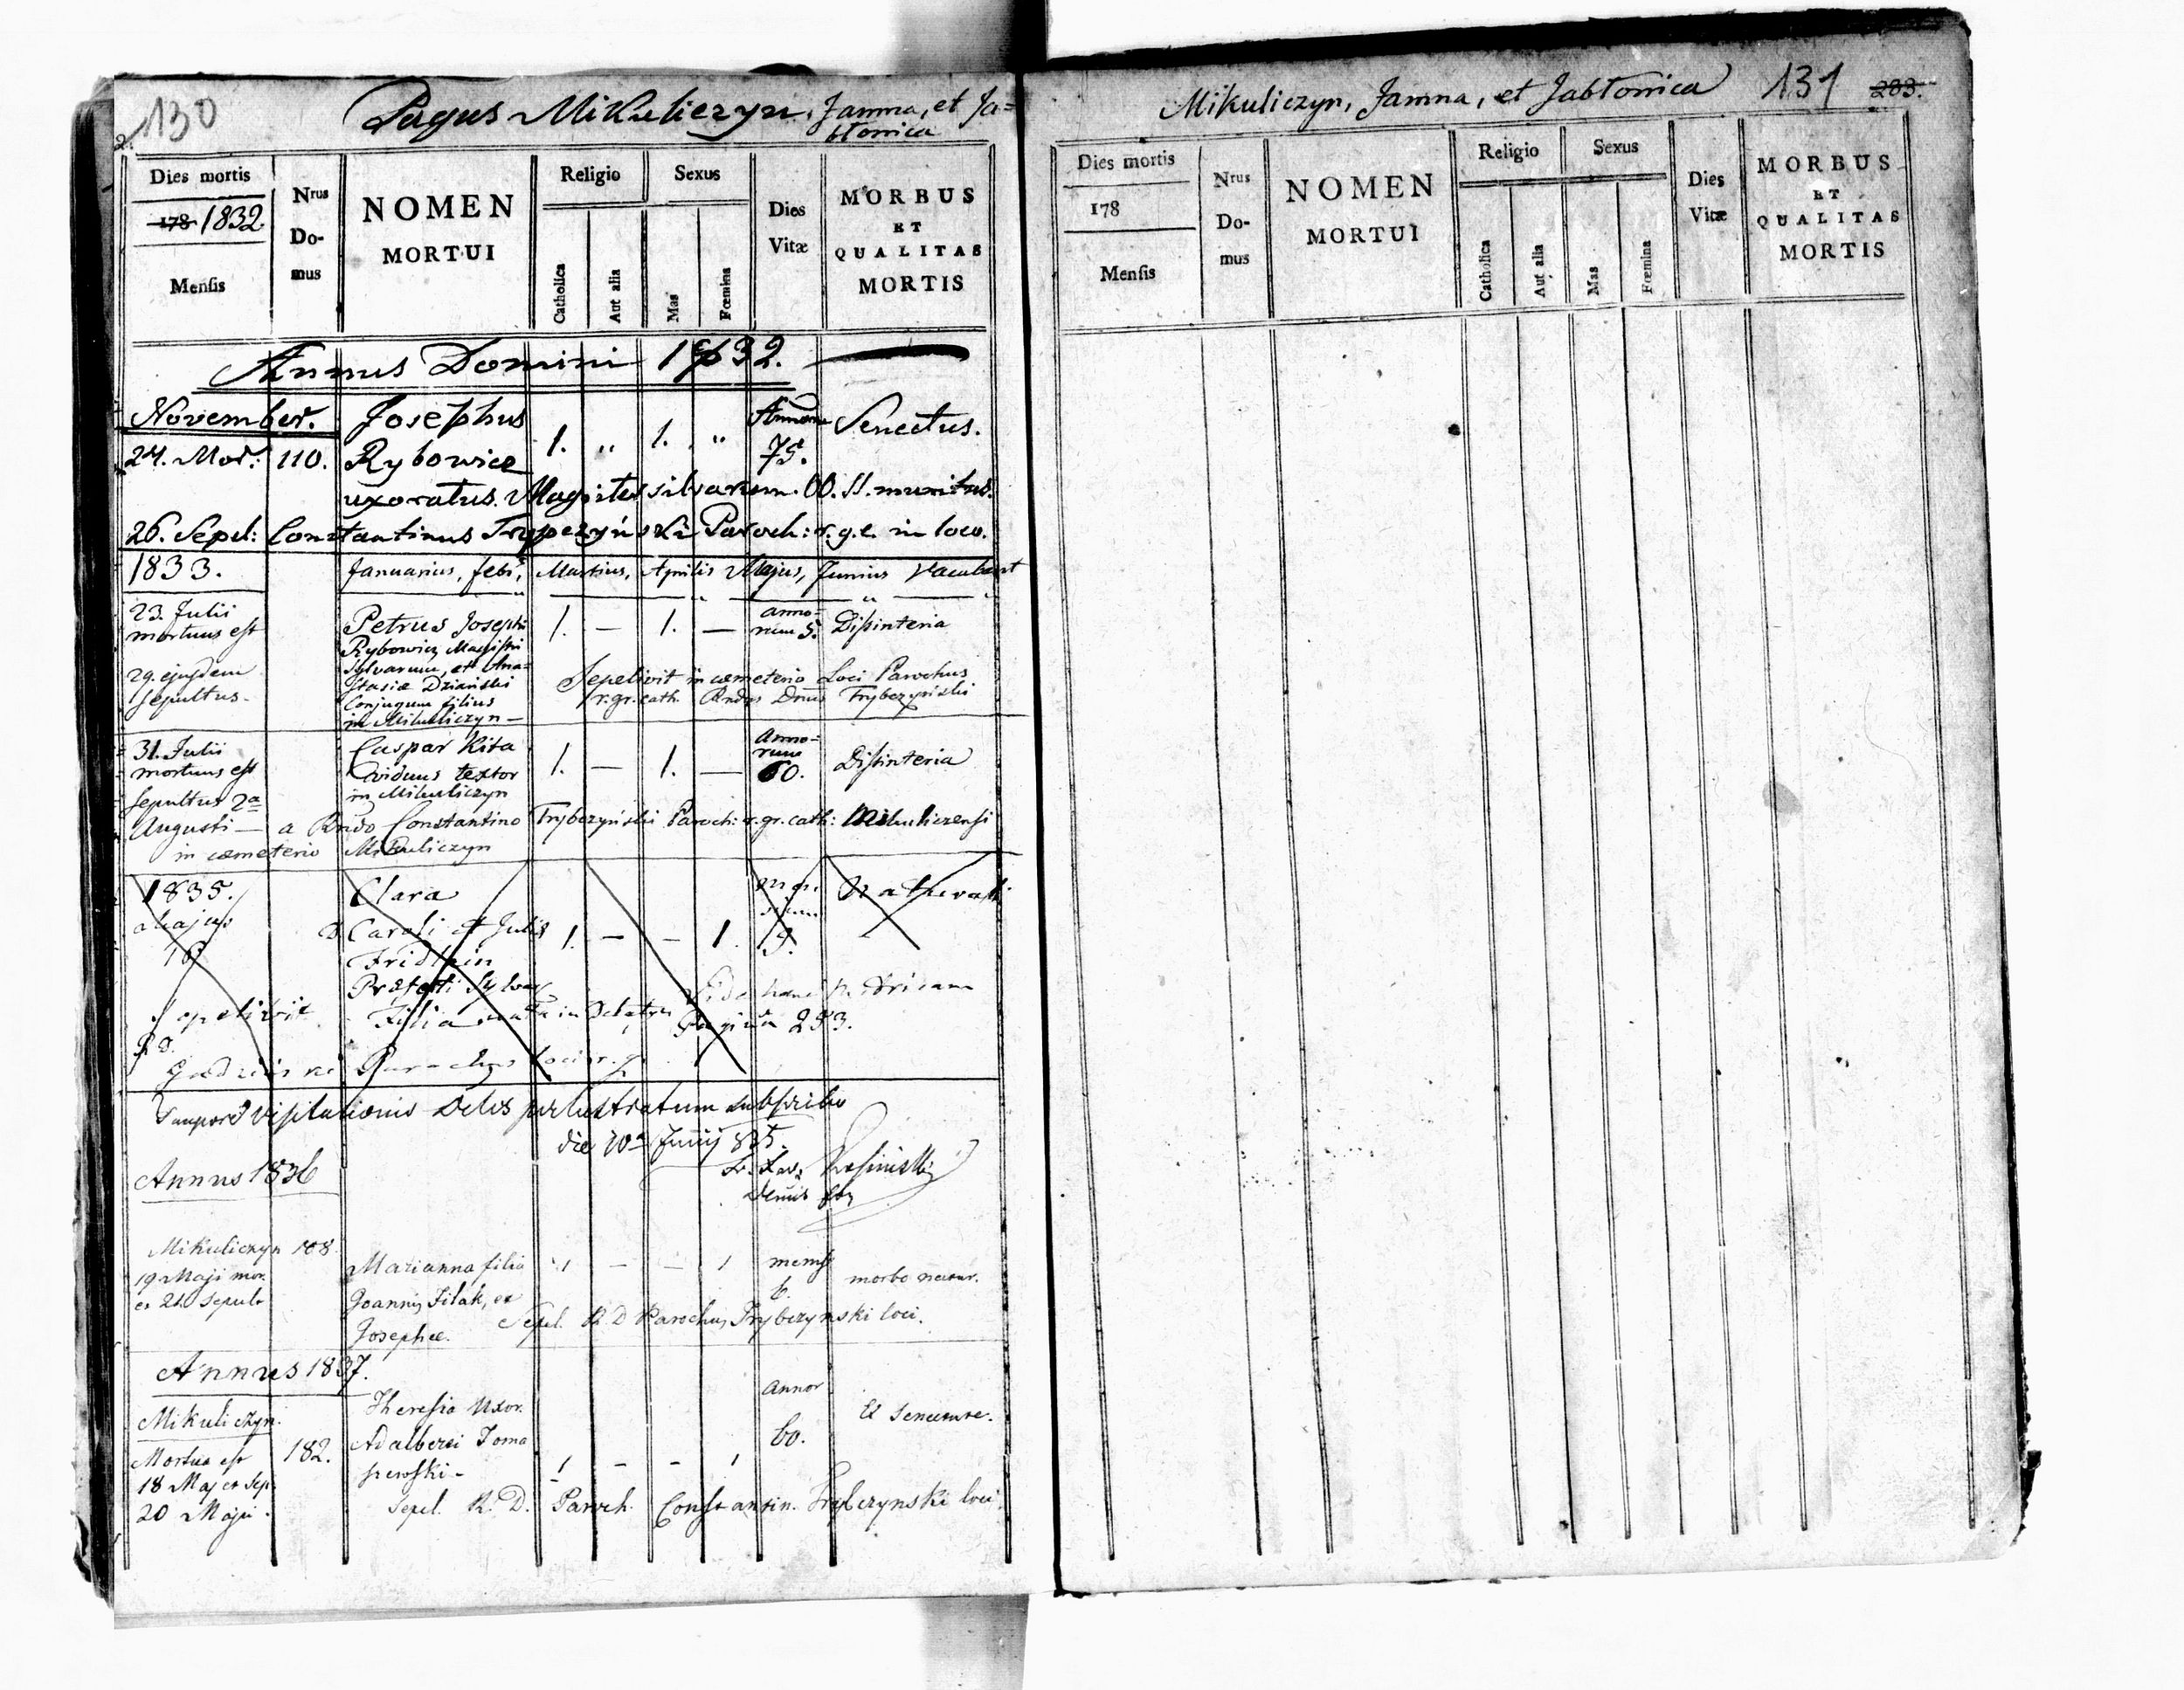 130
Pagus Mikuliczyn, Jamna, et Ja=
błonica
2.
Dies mortis
178 1832
Mensis
Nrus
Do-
mus
NOMEN
MORTUI
Religio
Catholica
Aut alia
Sexus
Mas
Fœmina
Dies
Vitæ
MORBUS
ET
QUALITAS
MORTIS
Annus Domini 1832.
November. Josephus Senectus.
24. Mor: 110. Rybowicz 1. " 1. " 75.
uxoratus. Magister silvarum. OO. SS. munitus.
26. Sepel: Constantinus Trybczyński Paroch: r.g.c. in loco.
1833. Januarius, febr, Martius, Aprilis Majus, Junius Vacabant
23. Julii
mortuus est
Petrus Josephi 1. — 1. — anno=
rum 5. Dissinteria
Rybowicz Magistri
Sylvarum, et Ana=
stasiæ Dziański
Conjugum filius
in Mikuliczyn —
29. ejusdem
sepultus.
Sepelivit in cæmeterio Loci Parochus
r.gr.cath. Rndus Dnus Trybczyński
31. Julii
mortuus est
Caspar Kita
viduus textor
in Mikuliczyn
1. — 1. — Anno=
rum
60. Dissinteria
sepultus 2a
Augusti — a Rndo Constantino Trybczyński Paroch: r.gr.cath: Mikuliczensi
in cæmeterio Mikuliczyn
1835.
Majus
18
Clara
Caroli et Julia
Fridlein
1. — — 1. 9.
Filia
Sepelivit
R.D.
Parochus loci r.g.
Pagina 283.
Tempore Visitationis Delis perlustratum subscribo
die 20a Junij 835.
Annus 1836
Mikuliczyn 108.
19 Maji mor.
et 21. Sepult
Marianna filia 1 — — 1 mens
6. morbo natur.
Joannis Filak, et
Josephæ. Sepel. R D Parochus Trybczynski loci.
Annus 1837.
Mikuliczyn.
Mortua est
18 Maj et sep.
20 Maji.
182.
Theresia Uxor.
Adalberti Toma
szewski -
1 - - 1
annor
60.
Ex Senectute.
Sepel. R. D. Paroch. Constantin. Trybczynski loci.
Mikuliczyn, Jamna, et Jabłonica 131 283.
Dies mortis
178
Mensis
Nrus
Do-
mus
NOMEN
MORTUI
Religio
Catholica
Aut alia
Sexus
Mas
Fœmina
Dies
Vitæ
MORBUS
ET
QUALITAS
MORTIS